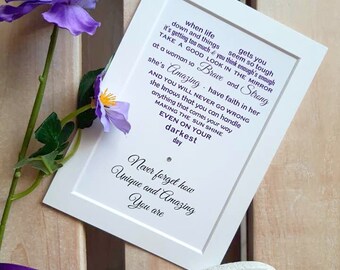 when life gets you
down and things seem so tough
it's getting too much & you think enough's enough
TAKE A GOOD LOOK IN THE MIRROR
at a woman so Brave and Strong
she's Amazing - have faith in her
AND YOU WILL NEVER GO WRONG
she knows that you can handle
anything that comes your way
MAKING THE SUN SHINE
EVEN ON YOUR
darkest
day
Never forget how
Unique and Amazing
You are